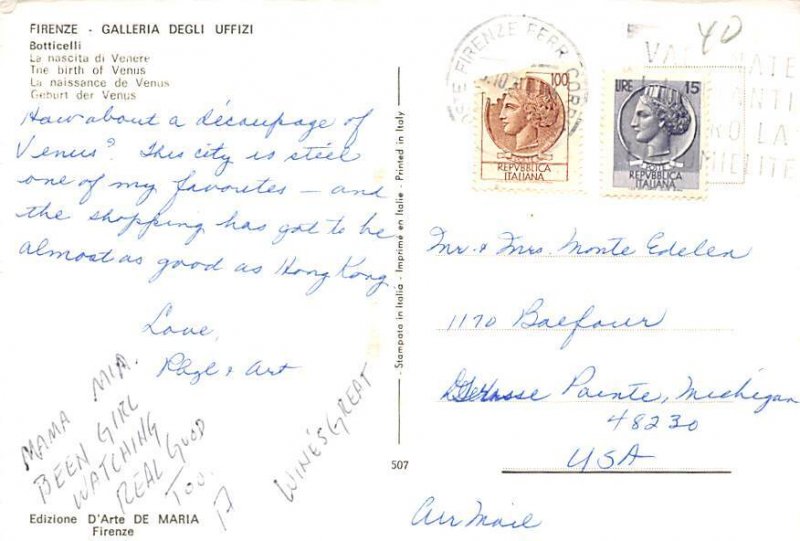 FIRENZE - GALLERIA DEGLI UFFIZI
Botticelli
La nascita di Venere
The birth of Venus
La naissance de Venus
Geburt der Venus
How about a découpage of
Venus? This city is steel
one of my favorites – and
the shopping has got to be
almost as good as Hong Kong.
Love,
& Art
MAMA MIA.
BEEN GIRL
WATCHING
REAL GOOD
TOO.
A
WINE'S GREAT
Edizione D'Arte DE MARIA
Firenze
Stampata in Italia - Imprimé en Italie - Printed in Italy
507
40
FIRENZE FERR. CORR
100
REPVBBLICA
ITALIANA
LIRE 15
POSTE
REPVBBLICA
ITALIANA
Mr. & Mrs Monte Edelen
1170 Balfour
Grosse Pointe, Michigan
48230
USA
Air Mail